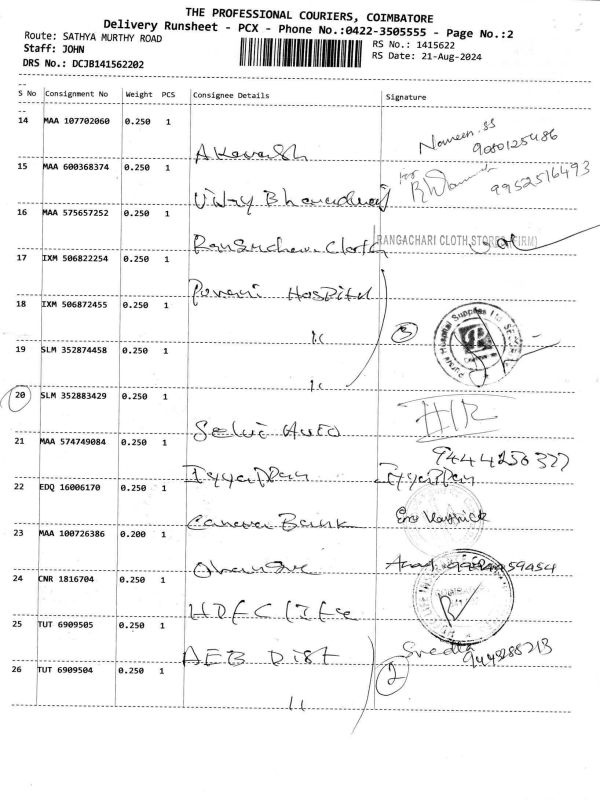 THE PROFESSIONAL COURIERS, COIMBATORE
Delivery Runsheet - PCX - Phone No.:0422-3505555 - Page No.:2
Route: SATHYA MURTHY ROAD
Staff: JOHN
DRS No.: DCJB141562202
RS No.: 1415622
RS Date: 21-Aug-2024
S No Consignment No Weight PCS Consignee Details Signature
14 MAA 107702060 0.250 1
Naveen.SS
9080125486
15 MAA 600368374 0.250 1
Vijay Bharadwaj
for
9952516493
16 MAA 575657252 0.250 1
Cloth
RANGACHARI CLOTH STORES (FIRM)
17 IXM 506822254 0.250 1
Hospital
18 IXM 506872455 0.250 1
11
3
19 SLM 352874458 0.250 1
11
20 SLM 352883429 0.250 1
Selvi Auto
21 MAA 574749084 0.250 1
Iyyappan
9444256377
Iyyappan
22 EDQ 16006170 0.250 1
Canara Bank
23 MAA 100726386 0.200 1
24 CNR 1816704 0.250 1
HDFC Life
25 TUT 6909505 0.250 1
AEB Dist
26 TUT 6909504 0.250 1
11
2